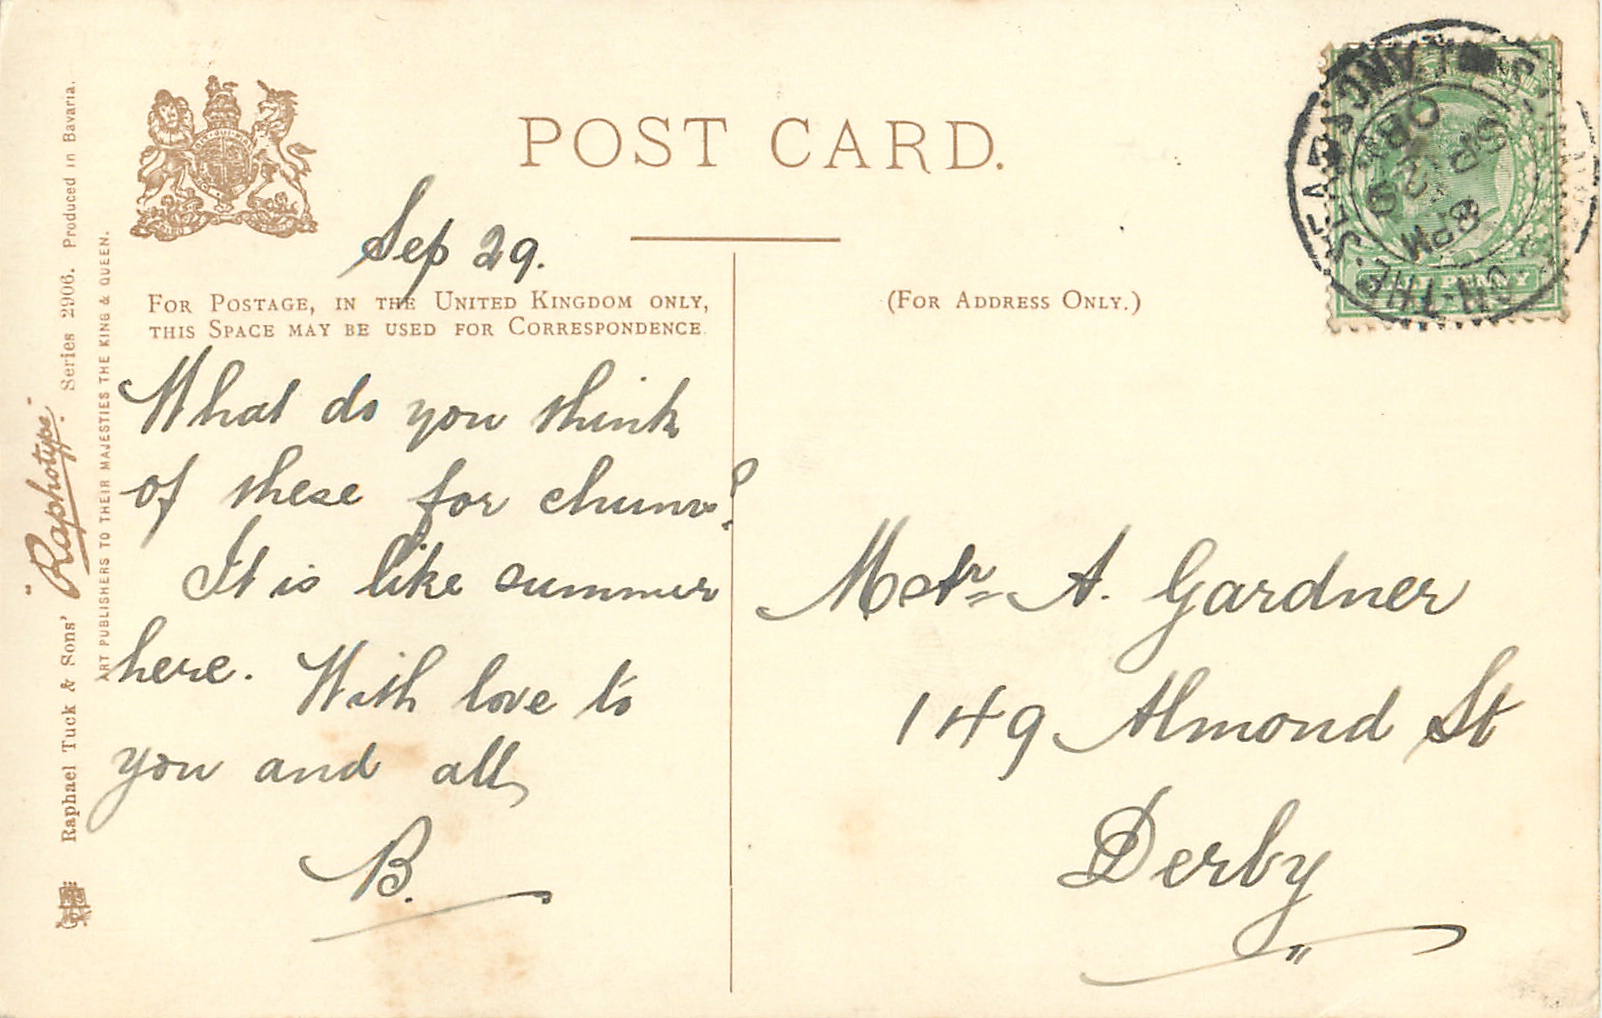 POST CARD.
Sep 29.
FOR POSTAGE, IN THE UNITED KINGDOM ONLY,
THIS SPACE MAY BE USED FOR CORRESPONDENCE.
(FOR ADDRESS ONLY.)
What do you think
of these for chums?
It is like summer
here. With love to
you and all,
B.
A. Gardner
149 Almond St
Derby
Raphael Tuck & Sons' "Raphotype" Series 2906. Produced in Bavaria.
ART PUBLISHERS TO THEIR MAJESTIES THE KING & QUEEN.
ST. LEONARDS
8 PM
SP 29
PENNY